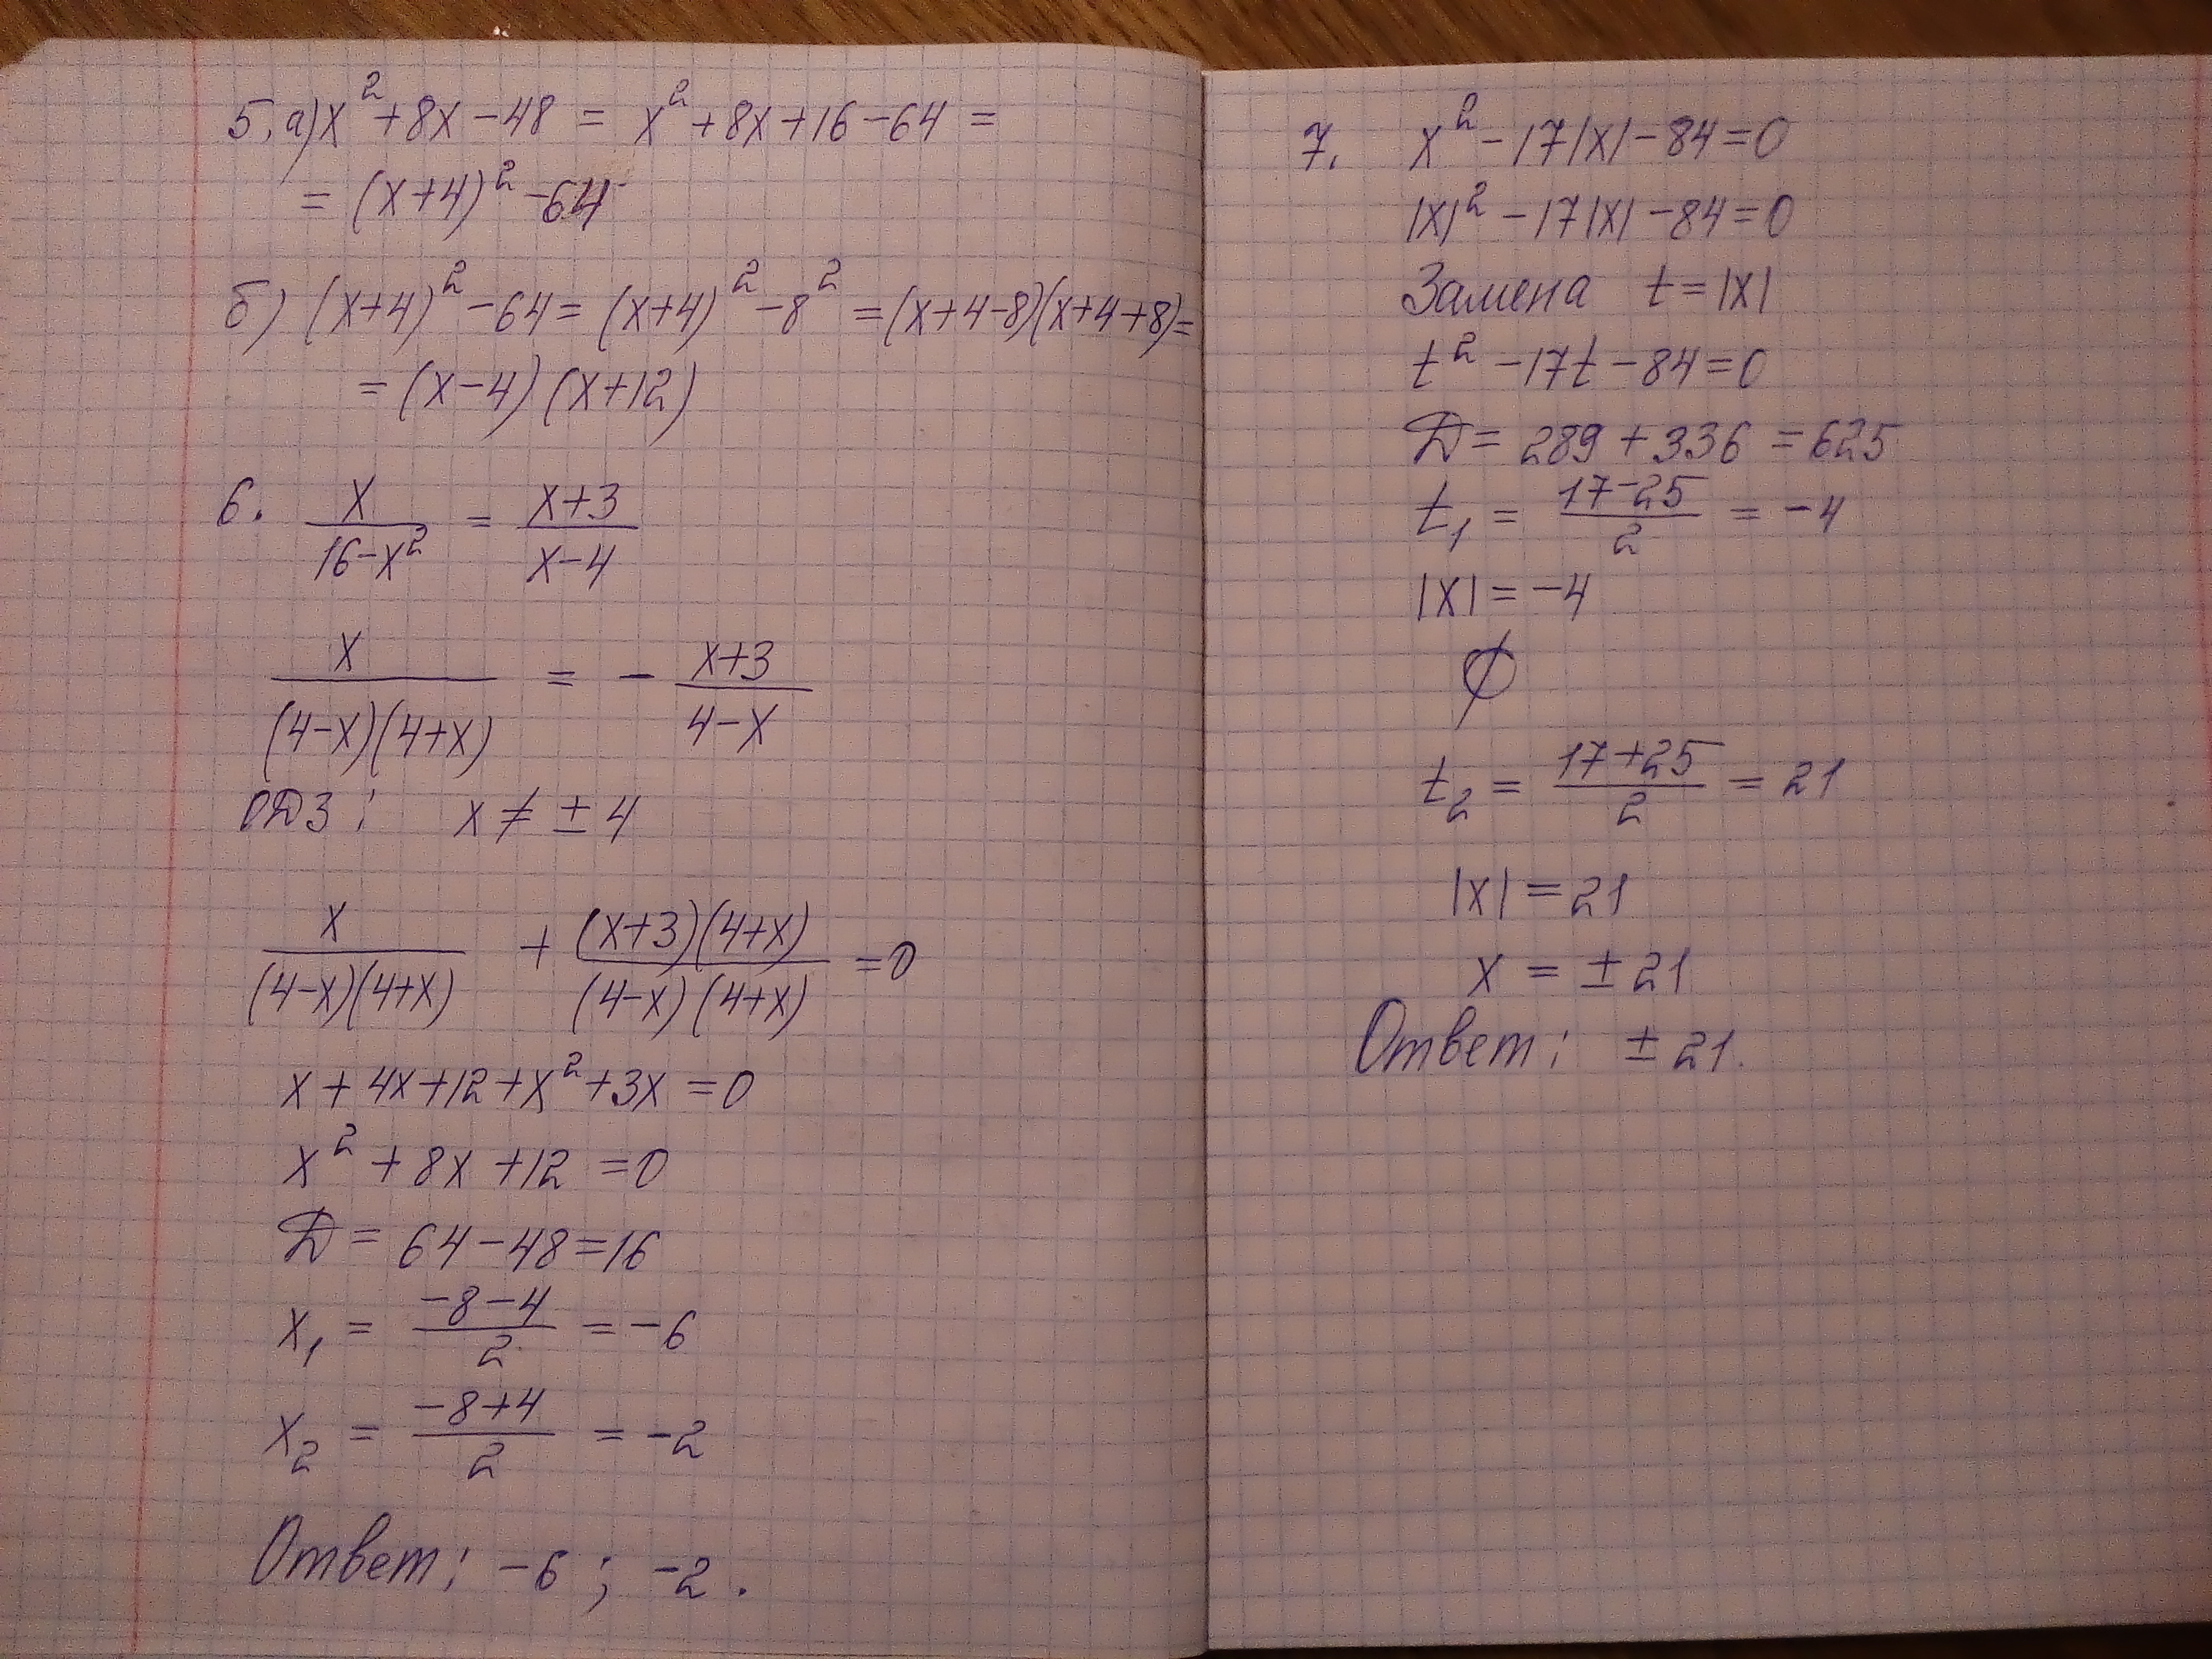 5. а) x² + 8x - 48 = x² + 8x + 16 - 64 =
= (x+4)² - 64
б) (x+4)² - 64 = (x+4)² - 8² = (x+4-8)(x+4+8) =
= (x-4)(x+12)
6. x/(16-x²) = (x+3)/(x-4)
x/((4-x)(4+x)) = - (x+3)/(4-x)
ОДЗ: x ≠ ± 4
x/((4-x)(4+x)) + ((x+3)(4+x))/((4-x)(4+x)) = 0
x + 4x + 12 + x² + 3x = 0
x² + 8x + 12 = 0
Д = 64 - 48 = 16
x₁ = (-8-4)/2 = -6
x₂ = (-8+4)/2 = -2
Ответ: -6; -2.
7. x² - 17|x| - 84 = 0
|x|² - 17|x| - 84 = 0
Замена t = |x|
t² - 17t - 84 = 0
Д = 289 + 336 = 625
t₁ = (17-25)/2 = -4
|x| = -4
∅
t₂ = (17+25)/2 = 21
|x| = 21
x = ± 21
Ответ: ± 21.